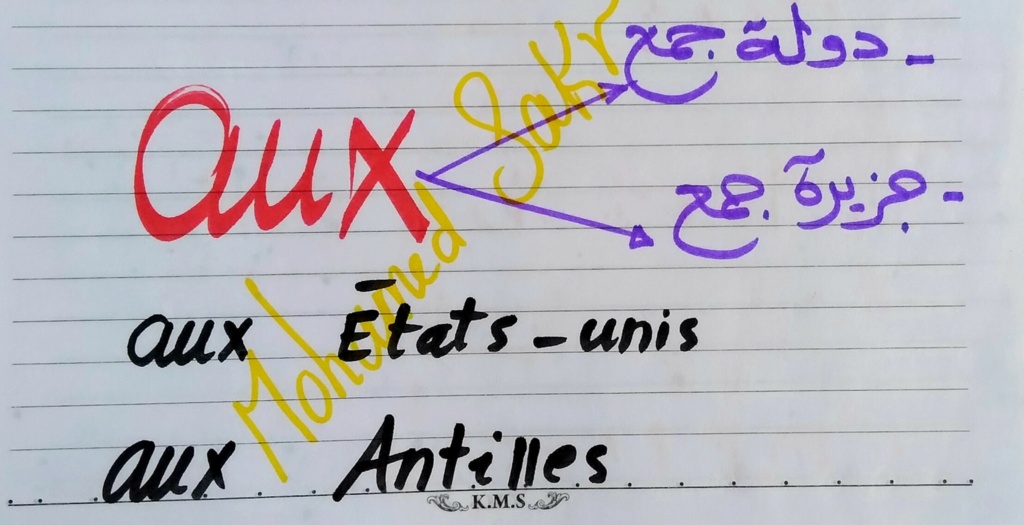 - دولة جمع
aux
- جزيرة جمع
aux États-unis
aux Antilles
Mohamed Sakr
K.M.S